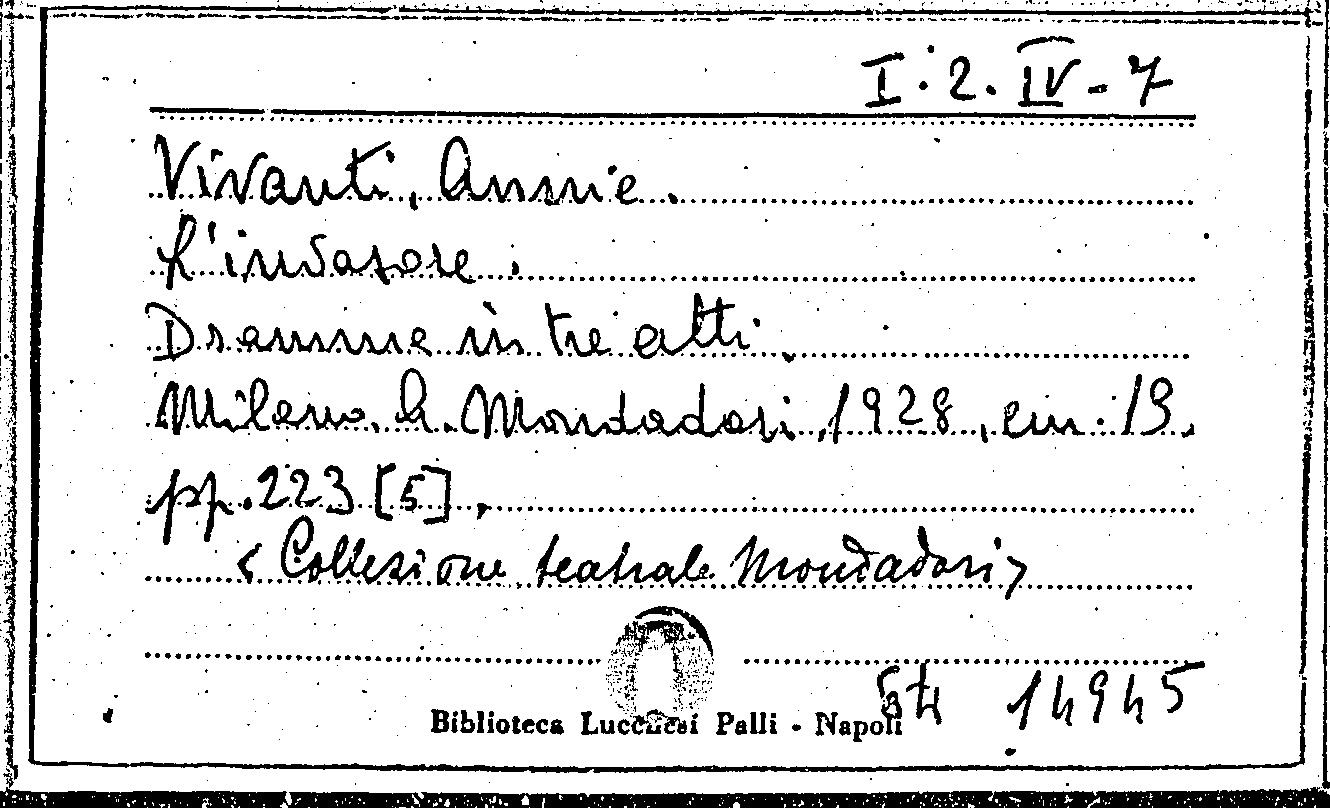 I. 2. IV - 7
Vivanti, Annie.
L'invasore.
Dramma in tre atti.
Milano, A. Mondadori, 1928, cm. 19,
pp. 223 [5].
< Collezione teatrale Mondadori >
14945
Biblioteca Lucchesi Palli - Napoli